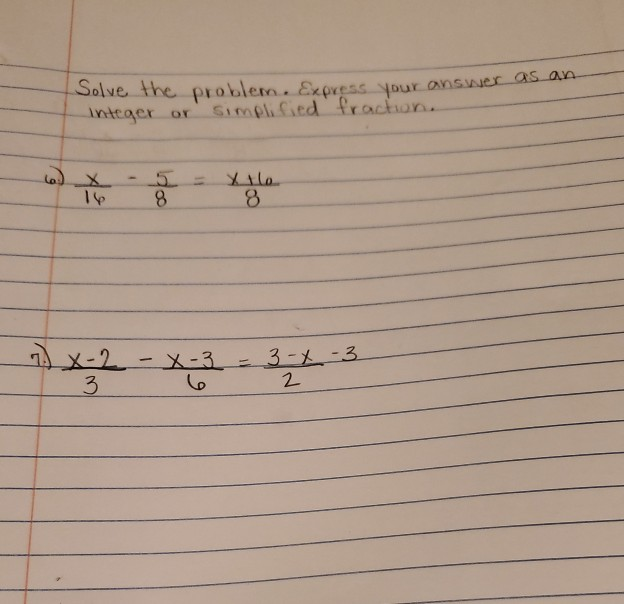 Solve the problem. Express your answer as an
integer or simplified fraction.
6.) x/16 - 5/8 = x+6/8
7.) x-2/3 - x-3/6 = 3-x/2 -3